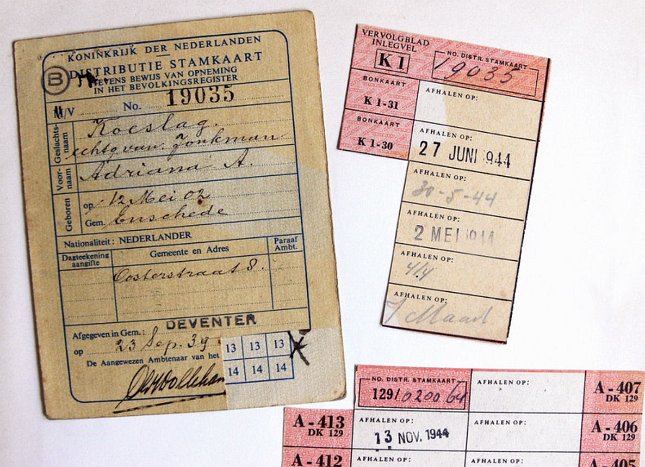 KONINKRIJK DER NEDERLANDEN
DISTRIBUTIE STAMKAART
TEVENS BEWIJS VAN OPNEMING
IN HET BEVOLKINGSREGISTER
B
M/V No. 19035
Geslachts-
naam
Koeslag.
echtg. van Jonkman
Voor-
naam
Adriana A.
Geboren
op 12 Mei 02
Gem. Enschede
Nationaliteit: NEDERLANDER
Dagteekening
aangifte
Gemeente en Adres
Paraaf
Ambt.
Oosterstraat 8.
Afgegeven in Gem.: DEVENTER
op 23 Sep. 39
De Aangewezen Ambtenaar van het
13 13 13
14 14 14
VERVOLGBLAD
INLEGVEL
K 1
NO. DISTR. STAMKAART
19035
BONKAART
K 1-31
AFHALEN OP:
BONKAART
K 1-30
AFHALEN OP:
27 JUNI 1944
AFHALEN OP:
30-5-44
AFHALEN OP:
2 MEI 1944
AFHALEN OP:
4/4
AFHALEN OP:
7 Maart
NO. DISTR. STAMKAART
129/020064
AFHALEN OP:
A - 407
DK 129
A - 413
DK 129
AFHALEN OP:
13 NOV. 1944
AFHALEN OP:
A - 406
DK 129
A - 412
AFHALEN OP:
AFHALEN OP:
A - 405